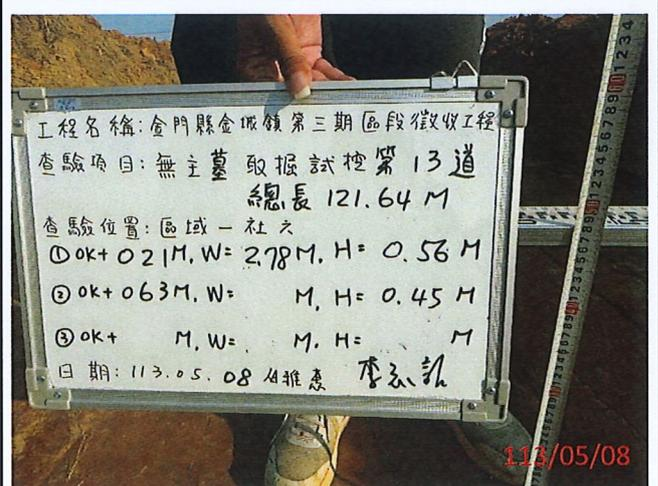 工程名稱:金門縣金城鎮第三期區段徵收工程
查驗項目:無主墓 取掘試挖第13道
總長 121.64 M
查驗位置:區域一社六
①0K+021M, W= 2.78M, H= 0.56 M
②0K+063M, W= M, H= 0.45 M
③0K+ M, W= M, H= M
日期:113.05.08
113/05/08